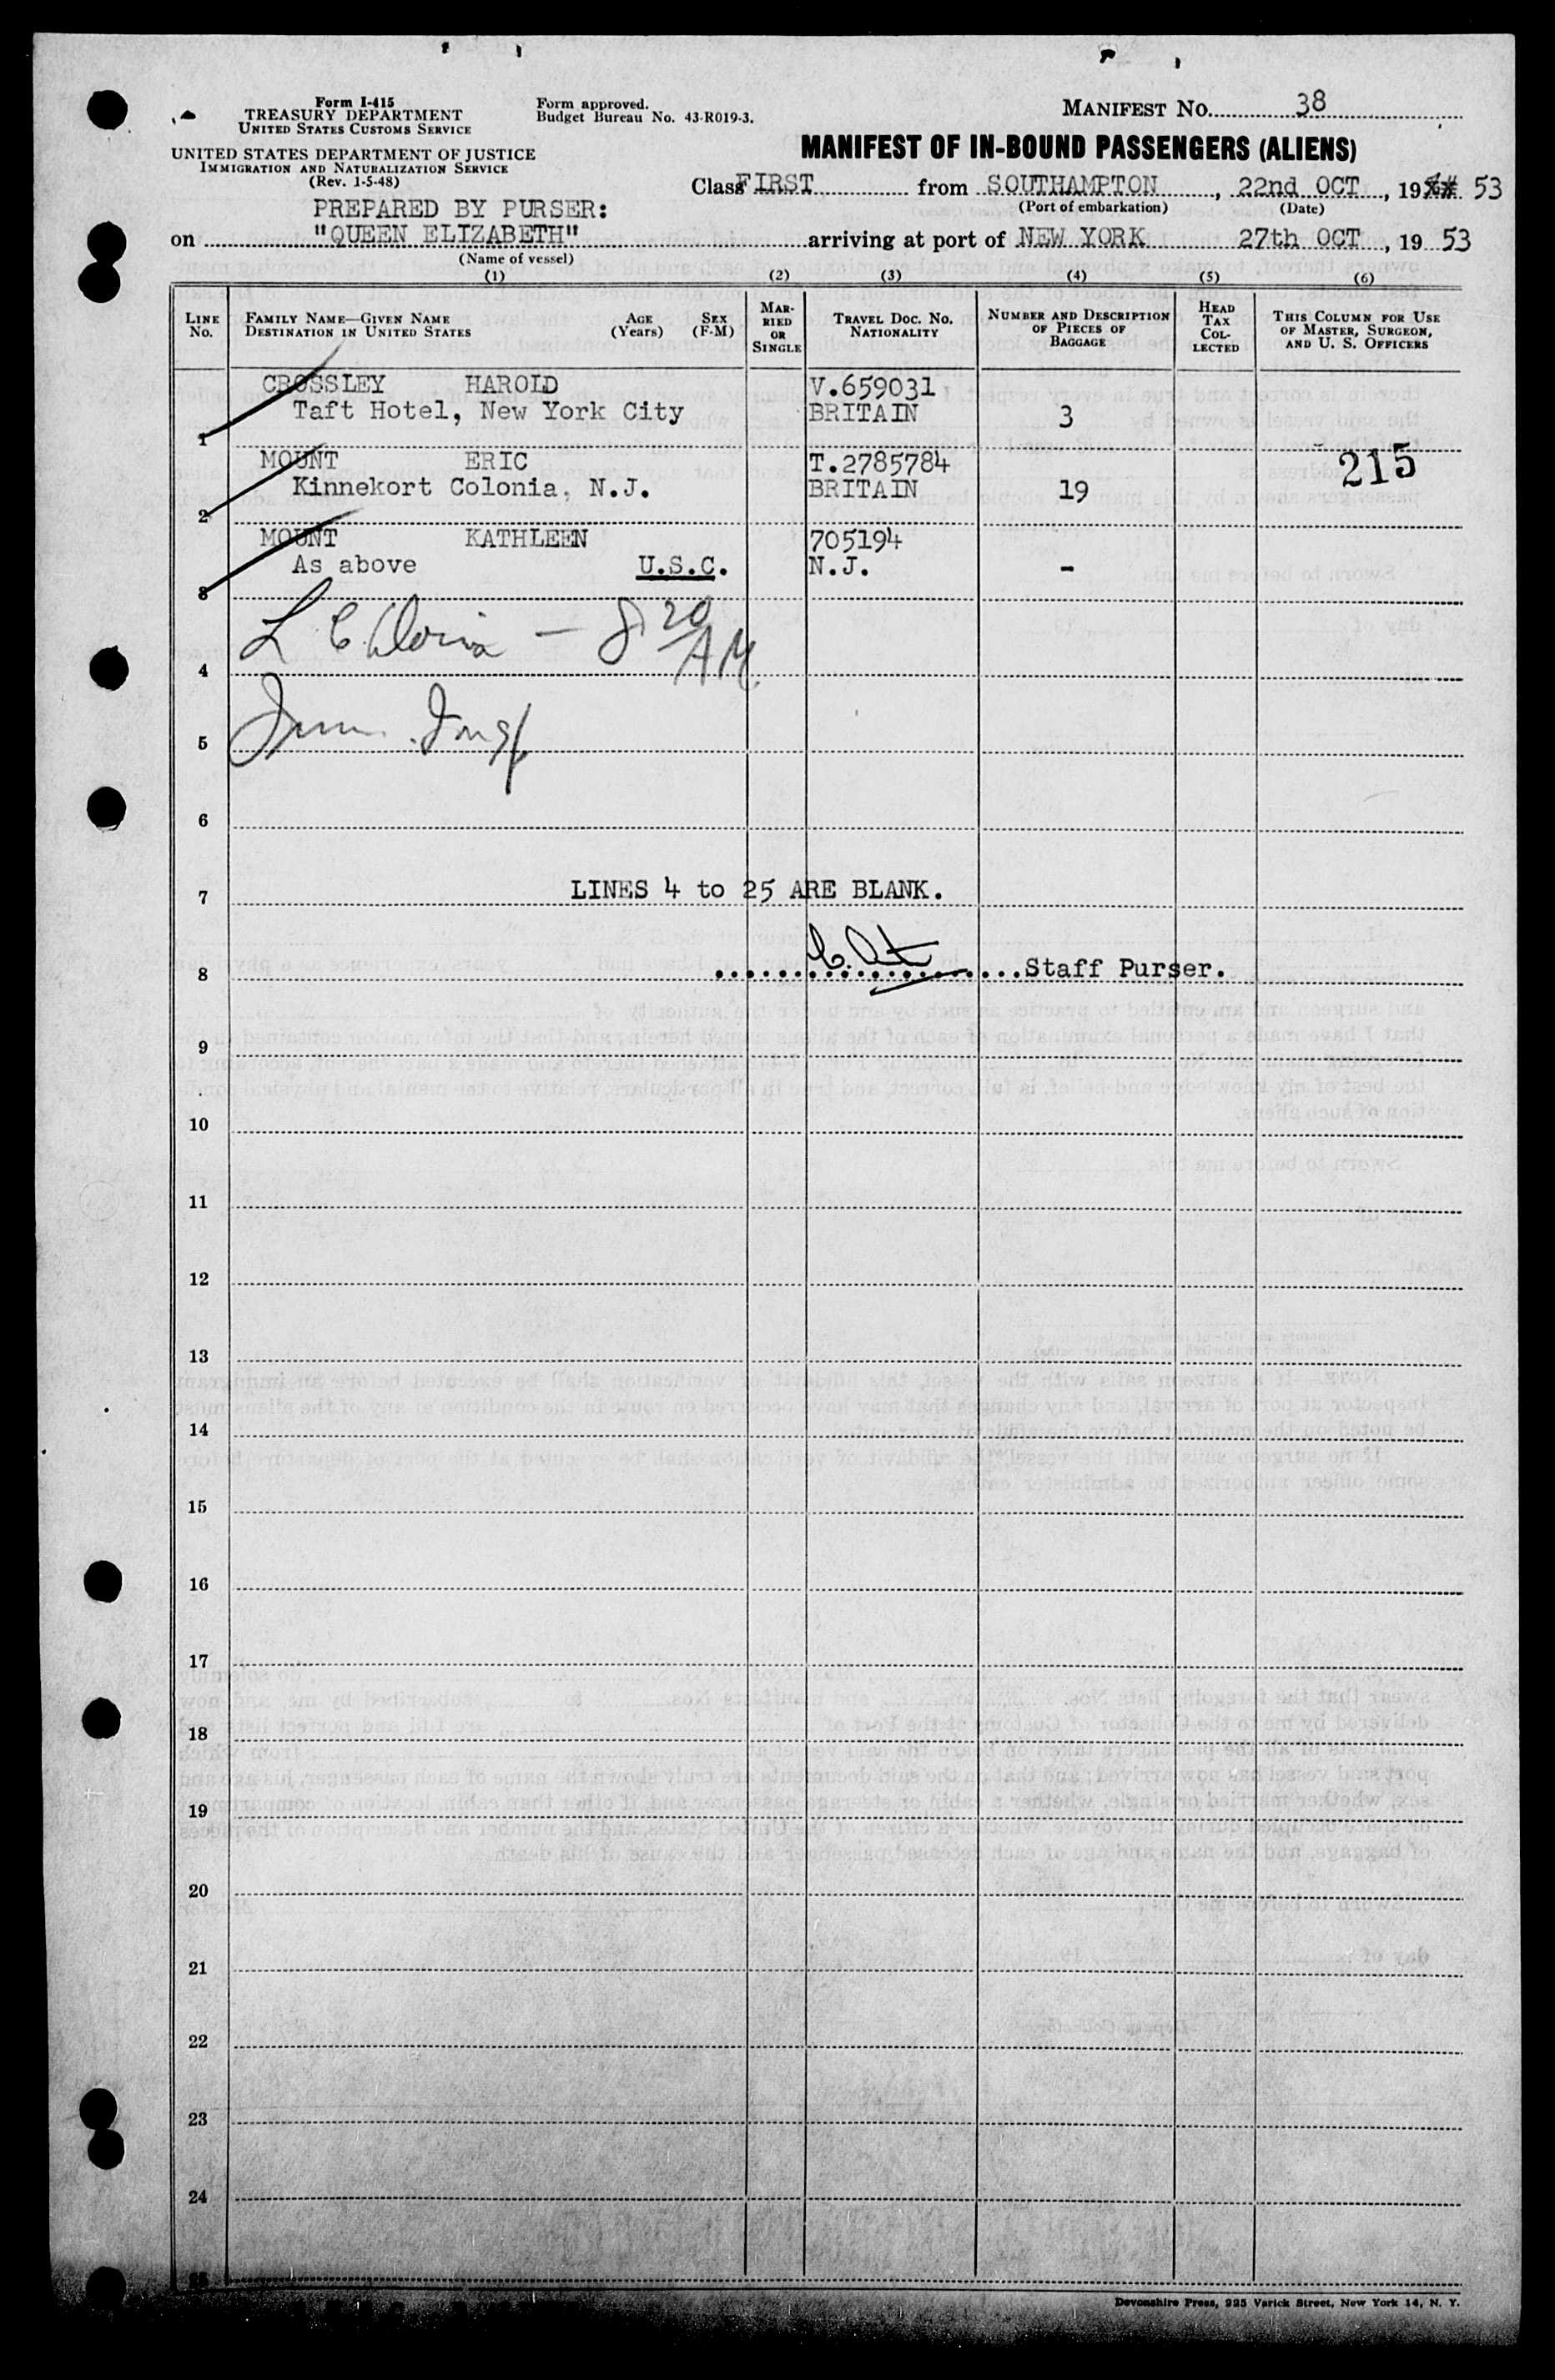 Form I-415
TREASURY DEPARTMENT
UNITED STATES CUSTOMS SERVICE
UNITED STATES DEPARTMENT OF JUSTICE
IMMIGRATION AND NATURALIZATION SERVICE
(Rev. 1-5-48)
Form approved.
Budget Bureau No. 43-R019-3.
MANIFEST NO. 38
MANIFEST OF IN-BOUND PASSENGERS (ALIENS)
Class FIRST from SOUTHAMPTON, 22nd OCT, 19 53
(Port of embarkation) (Date)
PREPARED BY PURSER:
on "QUEEN ELIZABETH" arriving at port of NEW YORK 27th OCT, 19 53
(Name of vessel)
(1) (2) (3) (4) (5) (6)
LINE No.
FAMILY NAME—GIVEN NAME
DESTINATION IN UNITED STATES
AGE (Years)
SEX (F-M)
MARRIED OR SINGLE
TRAVEL DOC. NO.
NATIONALITY
NUMBER AND DESCRIPTION OF PIECES OF BAGGAGE
HEAD TAX COLLECTED
THIS COLUMN FOR USE OF MASTER, SURGEON, AND U. S. OFFICERS
CROSSLEY HAROLD V.659031
Taft Hotel, New York City BRITAIN 3
1
MOUNT ERIC T.2785784 215
Kinnekort Colonia, N.J. BRITAIN 19
2
MOUNT KATHLEEN 705194
As above U.S.C. N.J. -
3
8 20 AM
4
5
6
LINES 4 to 25 ARE BLANK.
7
8 Staff Purser.
9
10
11
12
13
14
15
16
17
18
19
20
21
22
23
24
25
Devonshire Press, 225 Varick Street, New York 14, N. Y.